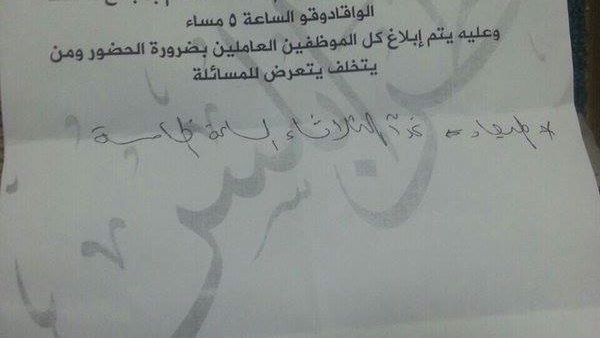 الواقادوقو الساعة ٥ مساء
وعليه يتم إبلاغ كل الموظفين العاملين بضرورة الحضور ومن
يتخلف يتعرض للمسائلة
* الميعاد = غداً الثلاثاء الساعة الخامسة *